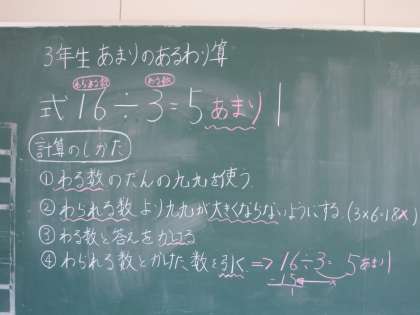 3年生 あまりのあるわり算
わられる数 わる数
式 16÷3=5あまり1
計算のしかた
①わる数のだんの九九を使う
②わられる数より九九が大きくならないようにする。(3×6=18×)
③わる数と答えをかける
④わられる数とかけた数を引く ⇒ 16÷3=5あまり1
-15
1